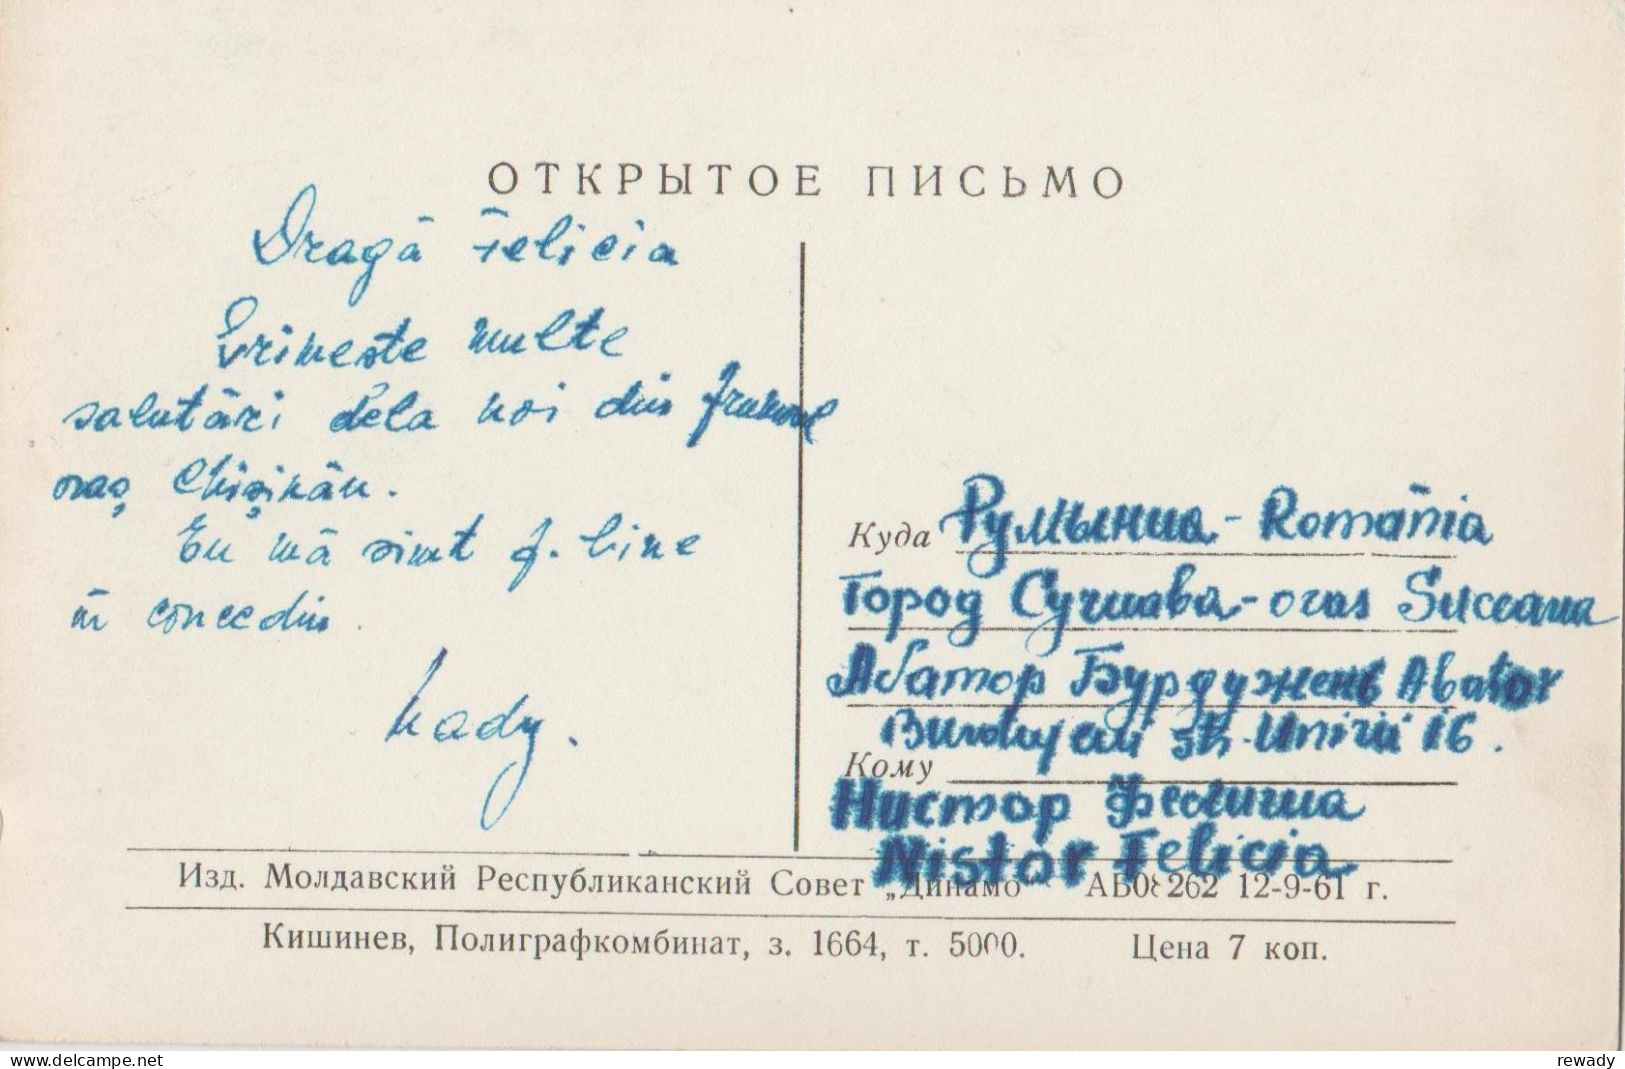 ОТКРЫТОЕ ПИСЬМО
Dragă Felicia
Primeste multe
salutări dela noi din frumosul
oraş Chişinău.
Eu mă simt f. bine
în concediu.
Kady.
Куда Румыниа - România
Город Сучиава - oras Suceava
Абатор Бурдужень Abator
Burdujeni str. Unirii 16.
Кому
Нистор Феличиа
Nistor Felicia
Изд. Молдавский Республиканский Совет „Динамо" АБ08262 12-9-61 г.
Кишинев, Полиграфкомбинат, з. 1664, т. 5000. Цена 7 коп.
www.delcampe.net
rewady